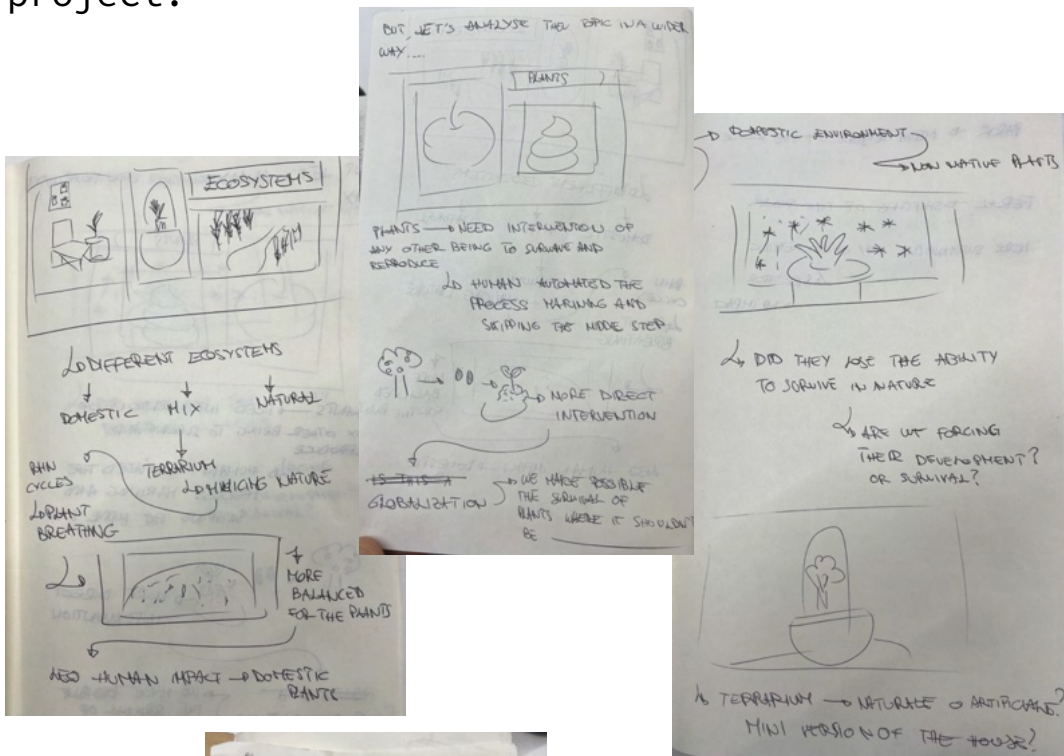 project.
ECOSYSTEMS
DIFFERENT ECOSYSTEMS
DOMESTIC MIX NATURAL
TERRARIUM
MIMICING NATURE
RAIN
CYCLES
PLANT
BREATHING
MORE
BALANCED
FOR THE PLANTS
HUMAN IMPACT → DOMESTIC
PLANTS
BUT, LET'S ANALYSE THE TOPIC IN A WIDER
WAY....
PLANTS
PLANTS → NEED INTERVENTION OF
ANY OTHER BEING TO SURVIVE AND
REPRODUCE
HUMAN AUTOMATED THE
PROCESS MAKING AND
SKIPPING THE MIDDLE STEP
MORE DIRECT
INTERVENTION
IS THIS A
GLOBALIZATION
WE MADE POSSIBLE
THE SURVIVAL OF
PLANTS WHERE IT SHOULDN'T
BE
DOMESTIC ENVIRONMENT
NON NATIVE PLANTS
DID THEY LOSE THE ABILITY
TO SURVIVE IN NATURE
ARE WE FORCING
THEIR DEVELOPMENT?
OR SURVIVAL?
TERRARIUM → NATURALE O ARTIFICIALE?
MINI VERSION OF THE HOUSE?